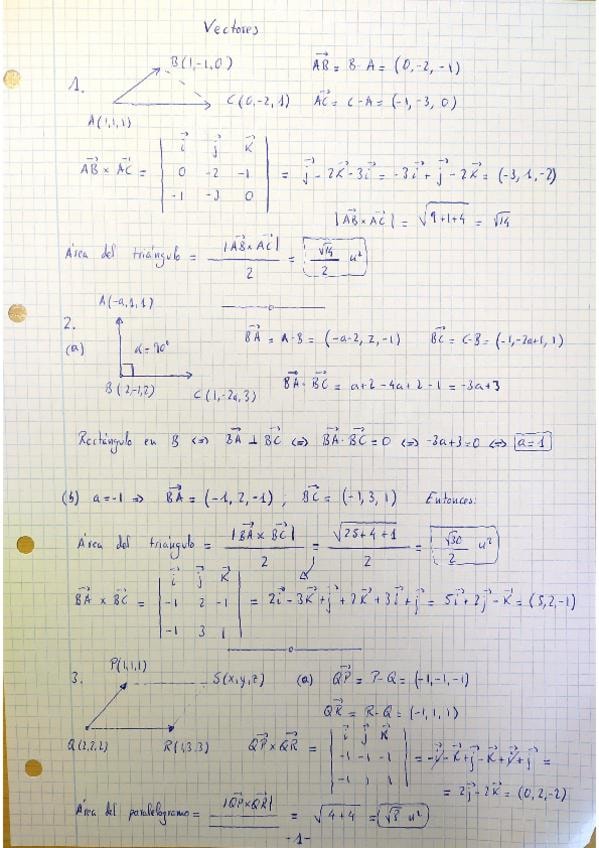 Vectores
1.
B(1,-1,0)
A(1,1,1)
C(0,-2,1)
AB⃗ = B-A = (0,-2,-1)
AC⃗ = C-A = (-1,-3,0)
AB⃗ × AC⃗ = | i⃗ j⃗ k⃗ | 0 -2 -1 | -1 -3 0 | = j⃗ - 2k⃗ - 3i⃗ = -3i⃗ + j⃗ - 2k⃗ = (-3,1,-2)
|AB⃗ × AC⃗| = √9+1+4 = √14
Área del triángulo = |AB⃗ × AC⃗| / 2 = √14 / 2 u²
2.
(a)
A(-a,1,1)
α = 90°
B(2,-1,2)
C(1,-2a,3)
BA⃗ = A-B = (-a-2, 2, -1) BC⃗ = C-B = (-1,-2a+1, 1)
BA⃗ · BC⃗ = a+2-4a+2-1 = -3a+3
Rectángulo en B ⇔ BA⃗ ⊥ BC⃗ ⇔ BA⃗ · BC⃗ = 0 ⇔ -3a+3=0 ⇔ a=1
(b) a=-1 ⇒ BA⃗ = (-1,2,-1) ; BC⃗ = (-1,3,1) Entonces:
Área del triángulo = |BA⃗ × BC⃗| / 2 = √25+4+1 / 2 = √30 / 2 u²
BA⃗ × BC⃗ = | i⃗ j⃗ k⃗ | -1 2 -1 | -1 3 1 | = 2i⃗ - 3k⃗ + j⃗ + 2k⃗ + 3i⃗ + j⃗ = 5i⃗ + 2j⃗ - k⃗ = (5,2,-1)
3.
P(1,1,1)
S(x,y,z)
Q(2,2,2)
R(1,3,3)
(a) QP⃗ = P-Q = (-1,-1,-1)
QR⃗ = R-Q = (-1,1,1)
QP⃗ × QR⃗ = | i⃗ j⃗ k⃗ | -1 -1 -1 | -1 1 1 | = -i⃗ - k⃗ + j⃗ - k⃗ + i⃗ + j⃗ =
= 2j⃗ - 2k⃗ = (0,2,-2)
Área del paralelogramo = |QP⃗ × QR⃗| = √4+4 = √8 u²
-1-